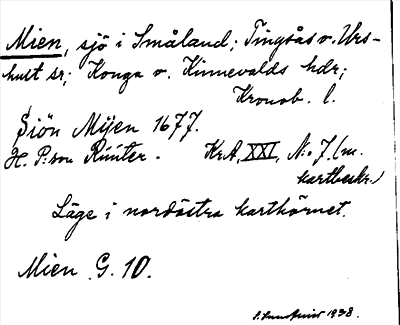 Mien, sjö i Småland; Tingsås o. Urs-
hult sr; Konga o. Kinnevalds hdr;
Kronob. l.
Siön Mÿen 1677.
H. P:son Rüüter. KrA, XXI, N:o 7 (m.
kartbeskr.)
Läge i nordöstra karthörnet.
Mien G. 10.
1938.